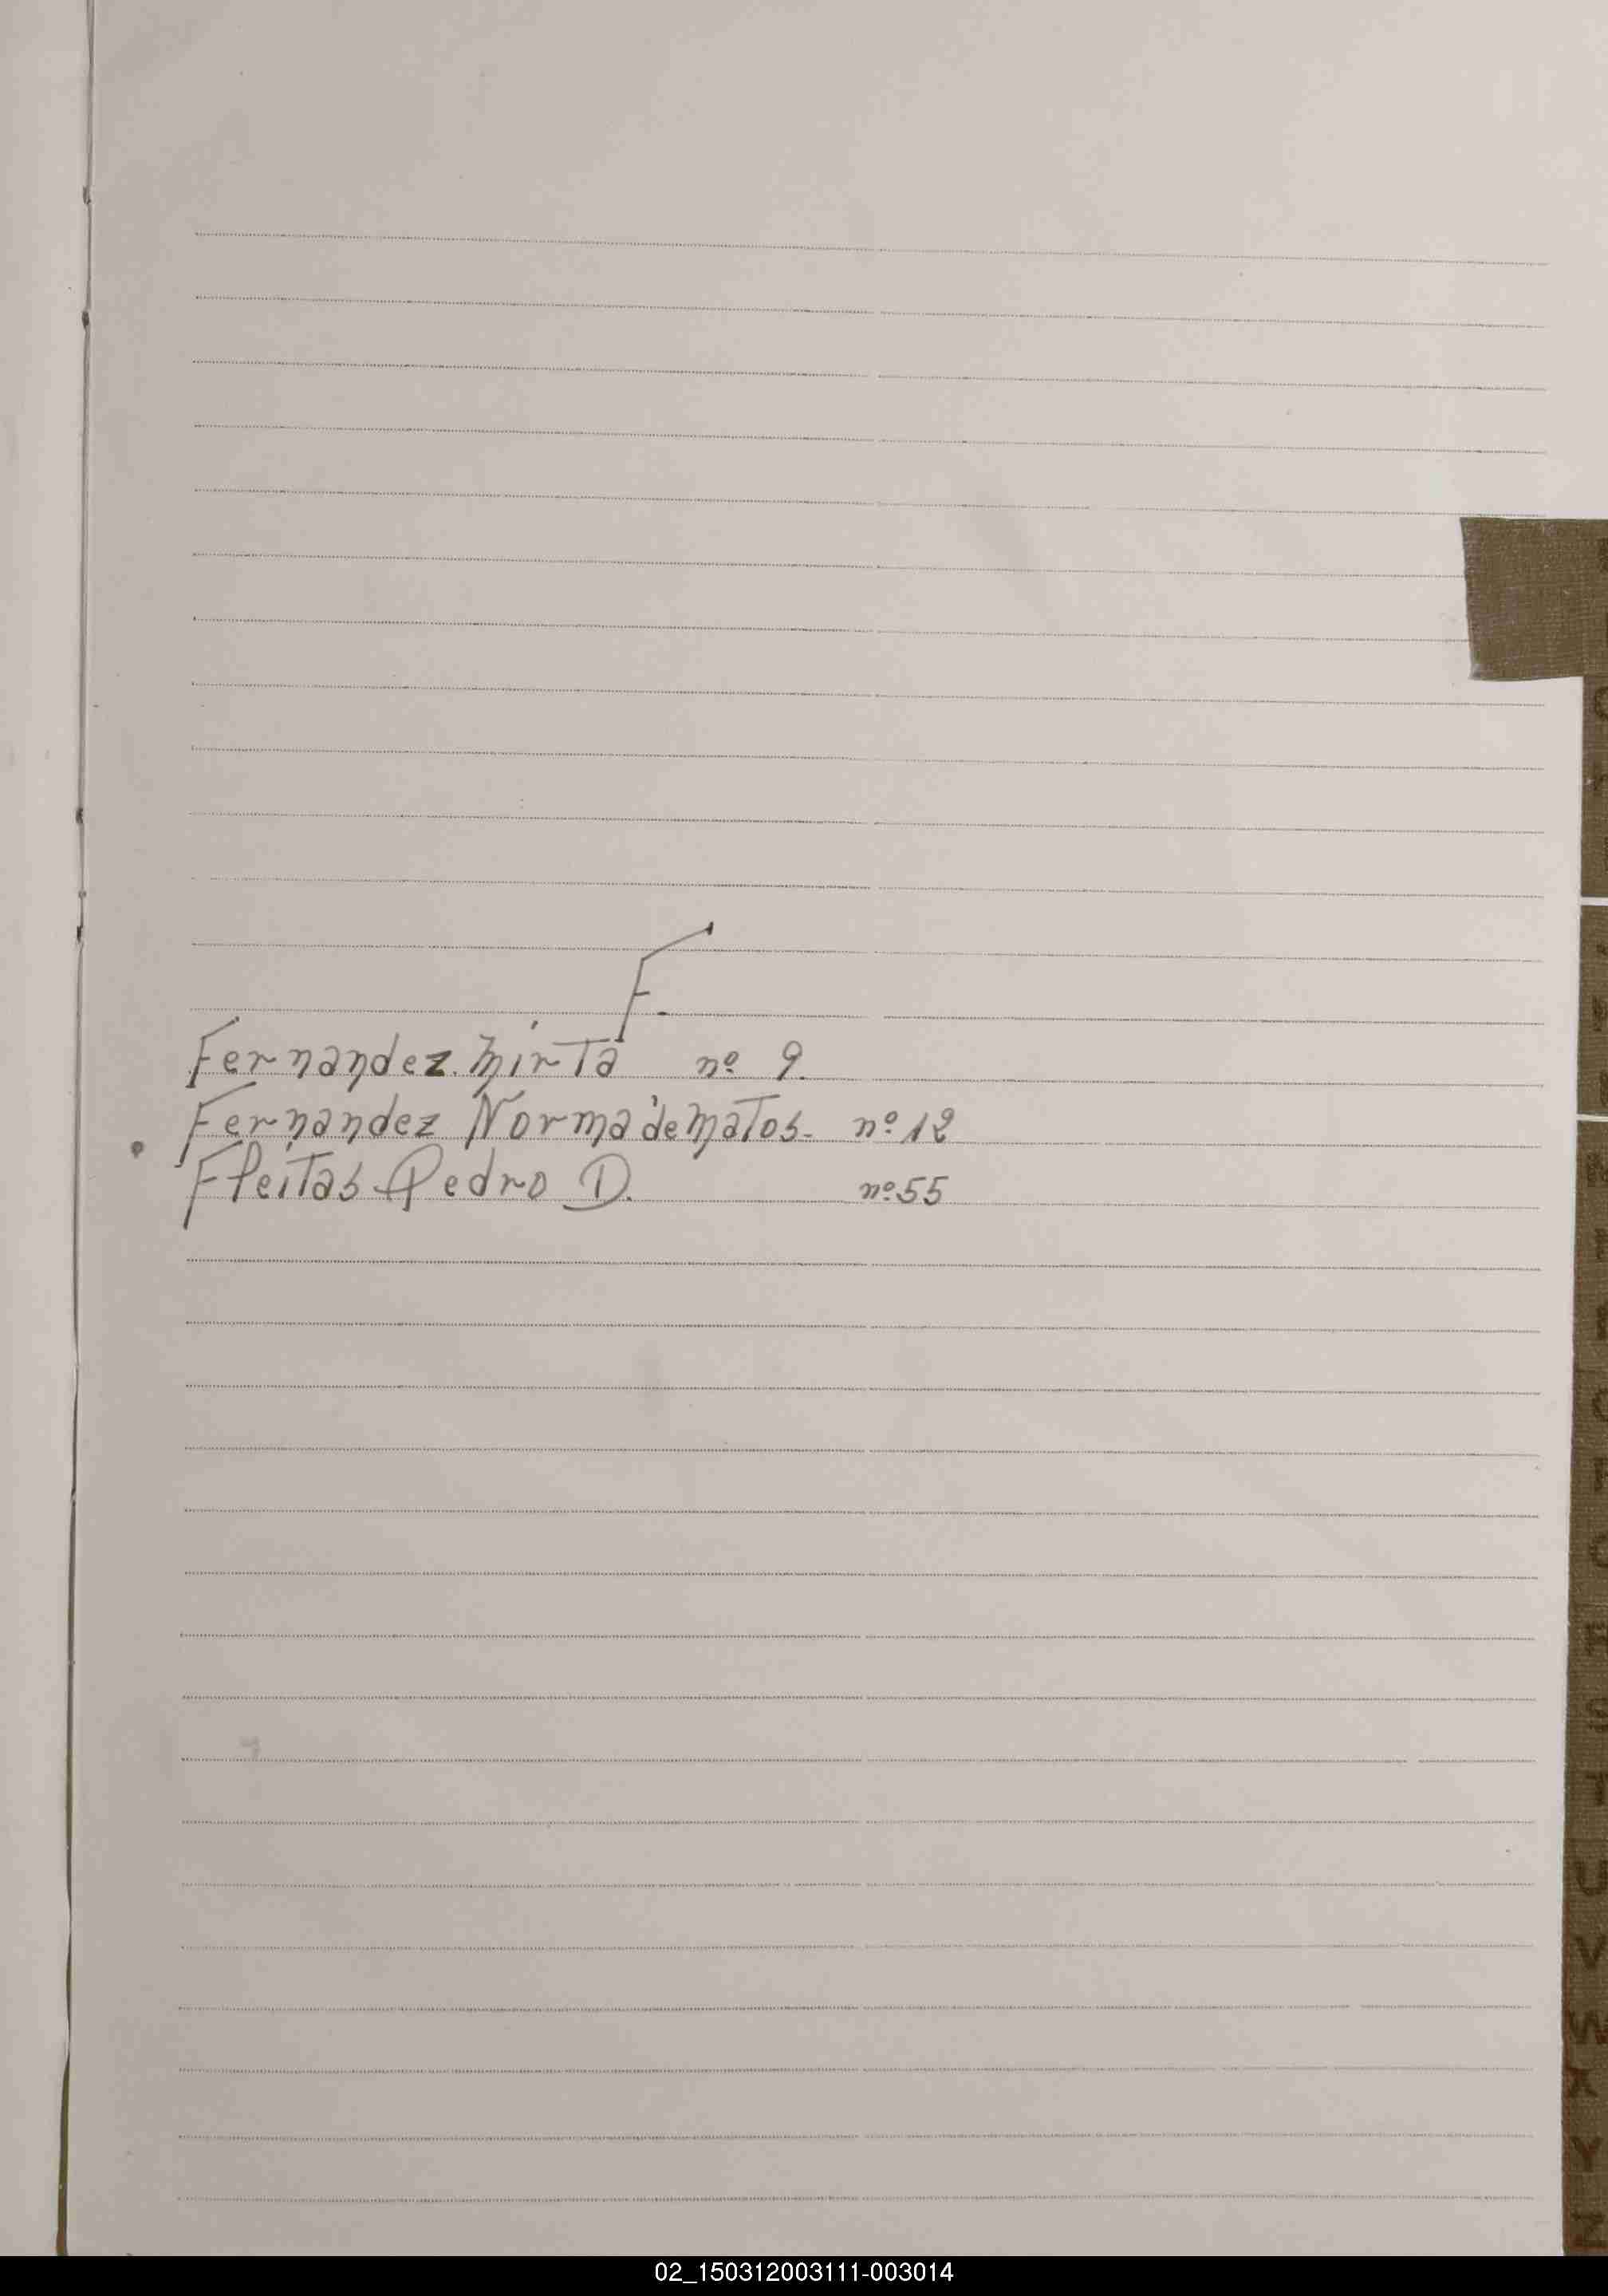 F.
Fernandez Mirta nº 9.
Fernandez Norma de Matos. nº 12
Fleitas Pedro D. nº 55
U
V
W
X
Y
Z
02_150312003111-003014